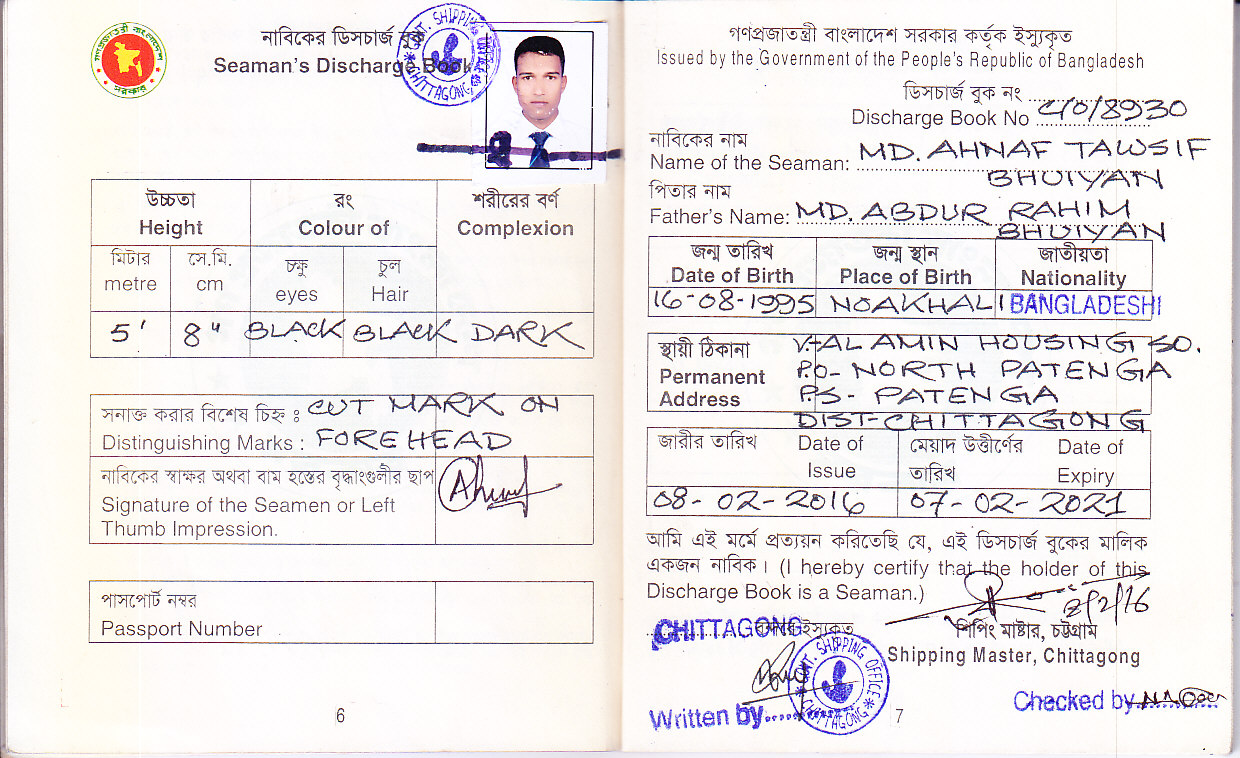 গণপ্রজাতন্ত্রী বাংলাদেশ
সরকার
নাবিকের ডিসচার্জ বুক
Seaman's Discharge Book
GOVT. SHIPPING OFFICE
CHITTAGONG
উচ্চতা
Height
রং
Colour of
শরীরের বর্ণ
Complexion
মিটার
metre
সে.মি.
cm
চক্ষু
eyes
চুল
Hair
5' 8" BLACK BLACK DARK
সনাক্ত করার বিশেষ চিহ্ন : CUT MARK ON
Distinguishing Marks : FOREHEAD
নাবিকের স্বাক্ষর অথবা বাম হস্তের বৃদ্ধাংগুলীর ছাপ
Signature of the Seamen or Left
Thumb Impression.
পাসপোর্ট নম্বর
Passport Number
6
গণপ্রজাতন্ত্রী বাংলাদেশ সরকার কর্তৃক ইস্যুকৃত
Issued by the Government of the People's Republic of Bangladesh
ডিসচার্জ বুক নং
Discharge Book No C/O/8930
নাবিকের নাম
Name of the Seaman: MD. AHNAF TAWSIF
BHUIYAN
পিতার নাম
Father's Name: MD. ABDUR RAHIM
BHUIYAN
জন্ম তারিখ
Date of Birth
জন্ম স্থান
Place of Birth
জাতীয়তা
Nationality
16-08-1995 NOAKHALI BANGLADESHI
স্থায়ী ঠিকানা
Permanent
Address
V:-AL AMIN HOUSING SO.
P.O- NORTH PATENGA
P.S- PATENGA
DIST-CHITTAGONG
জারীর তারিখ Date of
Issue
মেয়াদ উত্তীর্ণের
তারিখ
Date of
Expiry
08-02-2016 07-02-2021
আমি এই মর্মে প্রত্যয়ন করিতেছি যে, এই ডিসচার্জ বুকের মালিক
একজন নাবিক। (I hereby certify that the holder of this
Discharge Book is a Seaman.)
8/2/16
CHITTAGONG ইস্যুকৃত
শিপিং মাষ্টার, চট্টগ্রাম
Shipping Master, Chittagong
GOVT. SHIPPING OFFICE
CHITTAGONG
Written by
7
Checked by